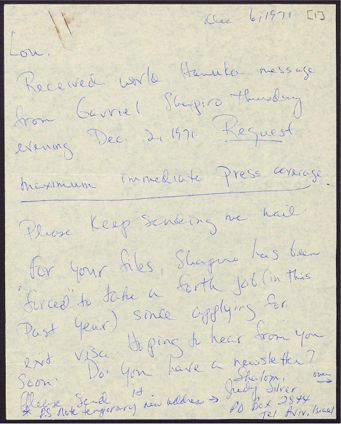 Dec 6, 1971 [1]
Lou.
Received world Hanuka message
from Gavriel Shapiro thursday
evening Dec 2, 1971 Request
maximum immediate press coverage.
Please keep sending me mail
For your files, Shapiro has been
"forced" to take a forth job (in this
past year) since applying for
exit visa Hoping to hear from you
soon. Do you have a newsletter?
Shalom, over →
Judy Silver
Please Send 1st
* P.S. Note temporary new address → PO Box 2844
Tel Aviv, Israel